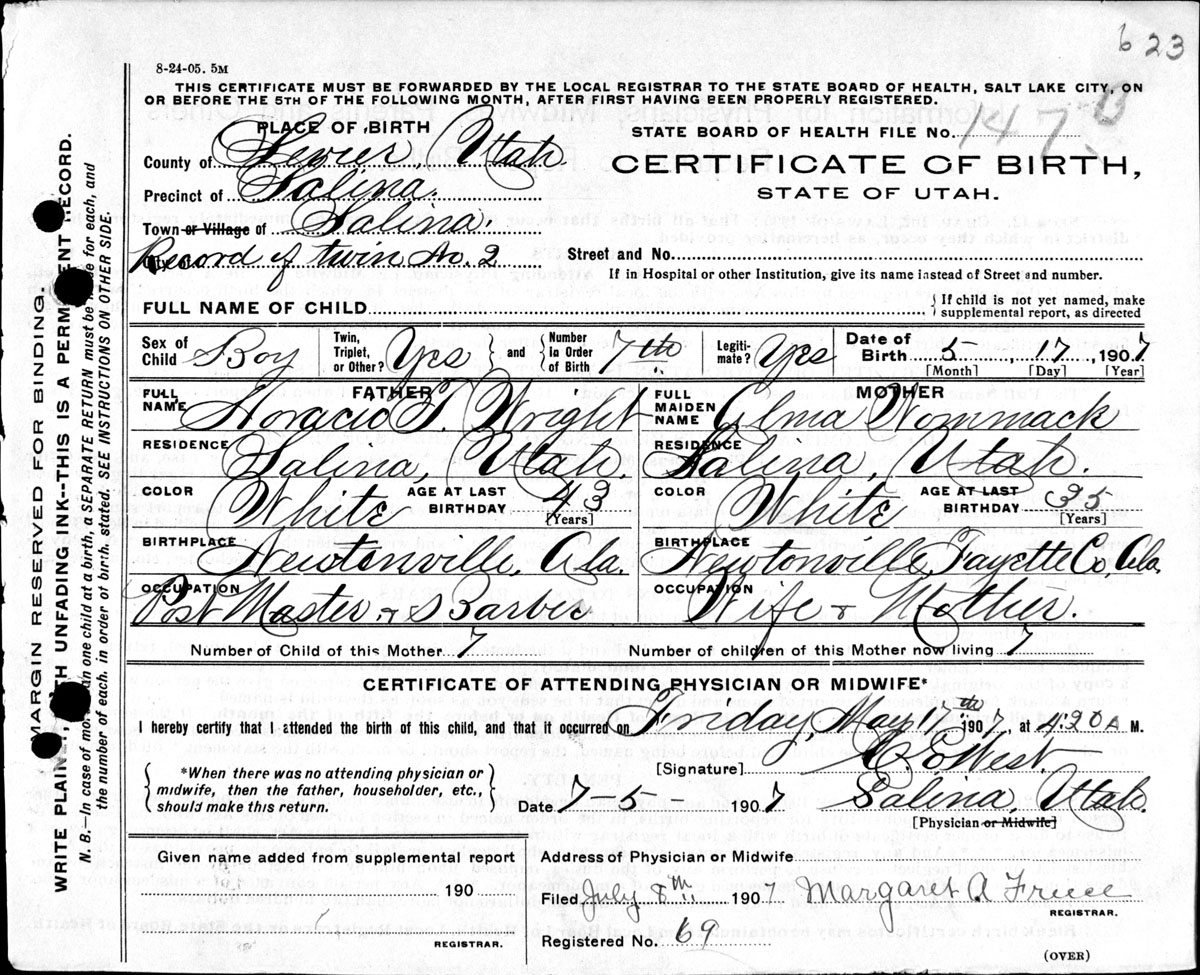 623
8-24-05. 5M
THIS CERTIFICATE MUST BE FORWARDED BY THE LOCAL REGISTRAR TO THE STATE BOARD OF HEALTH, SALT LAKE CITY, ON
OR BEFORE THE 5TH OF THE FOLLOWING MONTH, AFTER FIRST HAVING BEEN PROPERLY REGISTERED.
PLACE OF BIRTH
STATE BOARD OF HEALTH FILE No. 147
County of Sevier, Utah
CERTIFICATE OF BIRTH,
Precinct of Salina.
STATE OF UTAH.
Town or Village of Salina.
Record of twin No. 2
Street and No.
If in Hospital or other Institution, give its name instead of Street and number.
FULL NAME OF CHILD
{ If child is not yet named, make supplemental report, as directed
Sex of Child Boy Twin, Triplet, or Other? Yes } and { Number In Order of Birth 7th Legiti-mate? Yes Date of Birth 5, 17, 1907
[Month] [Day] [Year]
FATHER
FULL NAME Horacio T. Wright
MOTHER
FULL MAIDEN NAME Alma Wommack
RESIDENCE Salina, Utah.
RESIDENCE Salina, Utah.
COLOR White AGE AT LAST BIRTHDAY 43 [Years]
COLOR White AGE AT LAST BIRTHDAY 35 [Years]
BIRTHPLACE Newtonville, Ala.
BIRTHPLACE Newtonville, Fayette Co Ala.
OCCUPATION Post Master & Barber
OCCUPATION Wife & Mother.
Number of Child of this Mother 7
Number of children of this Mother now living 7
CERTIFICATE OF ATTENDING PHYSICIAN OR MIDWIFE*
I hereby certify that I attended the birth of this child, and that it occurred on Friday, May 17th 1907, at 4.20 A M.
{ *When there was no attending physician or midwife, then the father, householder, etc., should make this return. }
[Signature] West
Date 7-5- 1907 Salina, Utah.
[Physician or Midwife]
Given name added from supplemental report
190
REGISTRAR.
Address of Physician or Midwife
Filed July 8th 1907 Margaret A Freece
REGISTRAR.
Registered No. 69
(OVER)
MARGIN RESERVED FOR BINDING.
WRITE PLAINLY, WITH UNFADING INK--THIS IS A PERMANENT RECORD.
N. B.--In case of more than one child at a birth, a SEPARATE RETURN must be made for each, and
the number of each, in order of birth, stated. SEE INSTRUCTIONS ON OTHER SIDE.